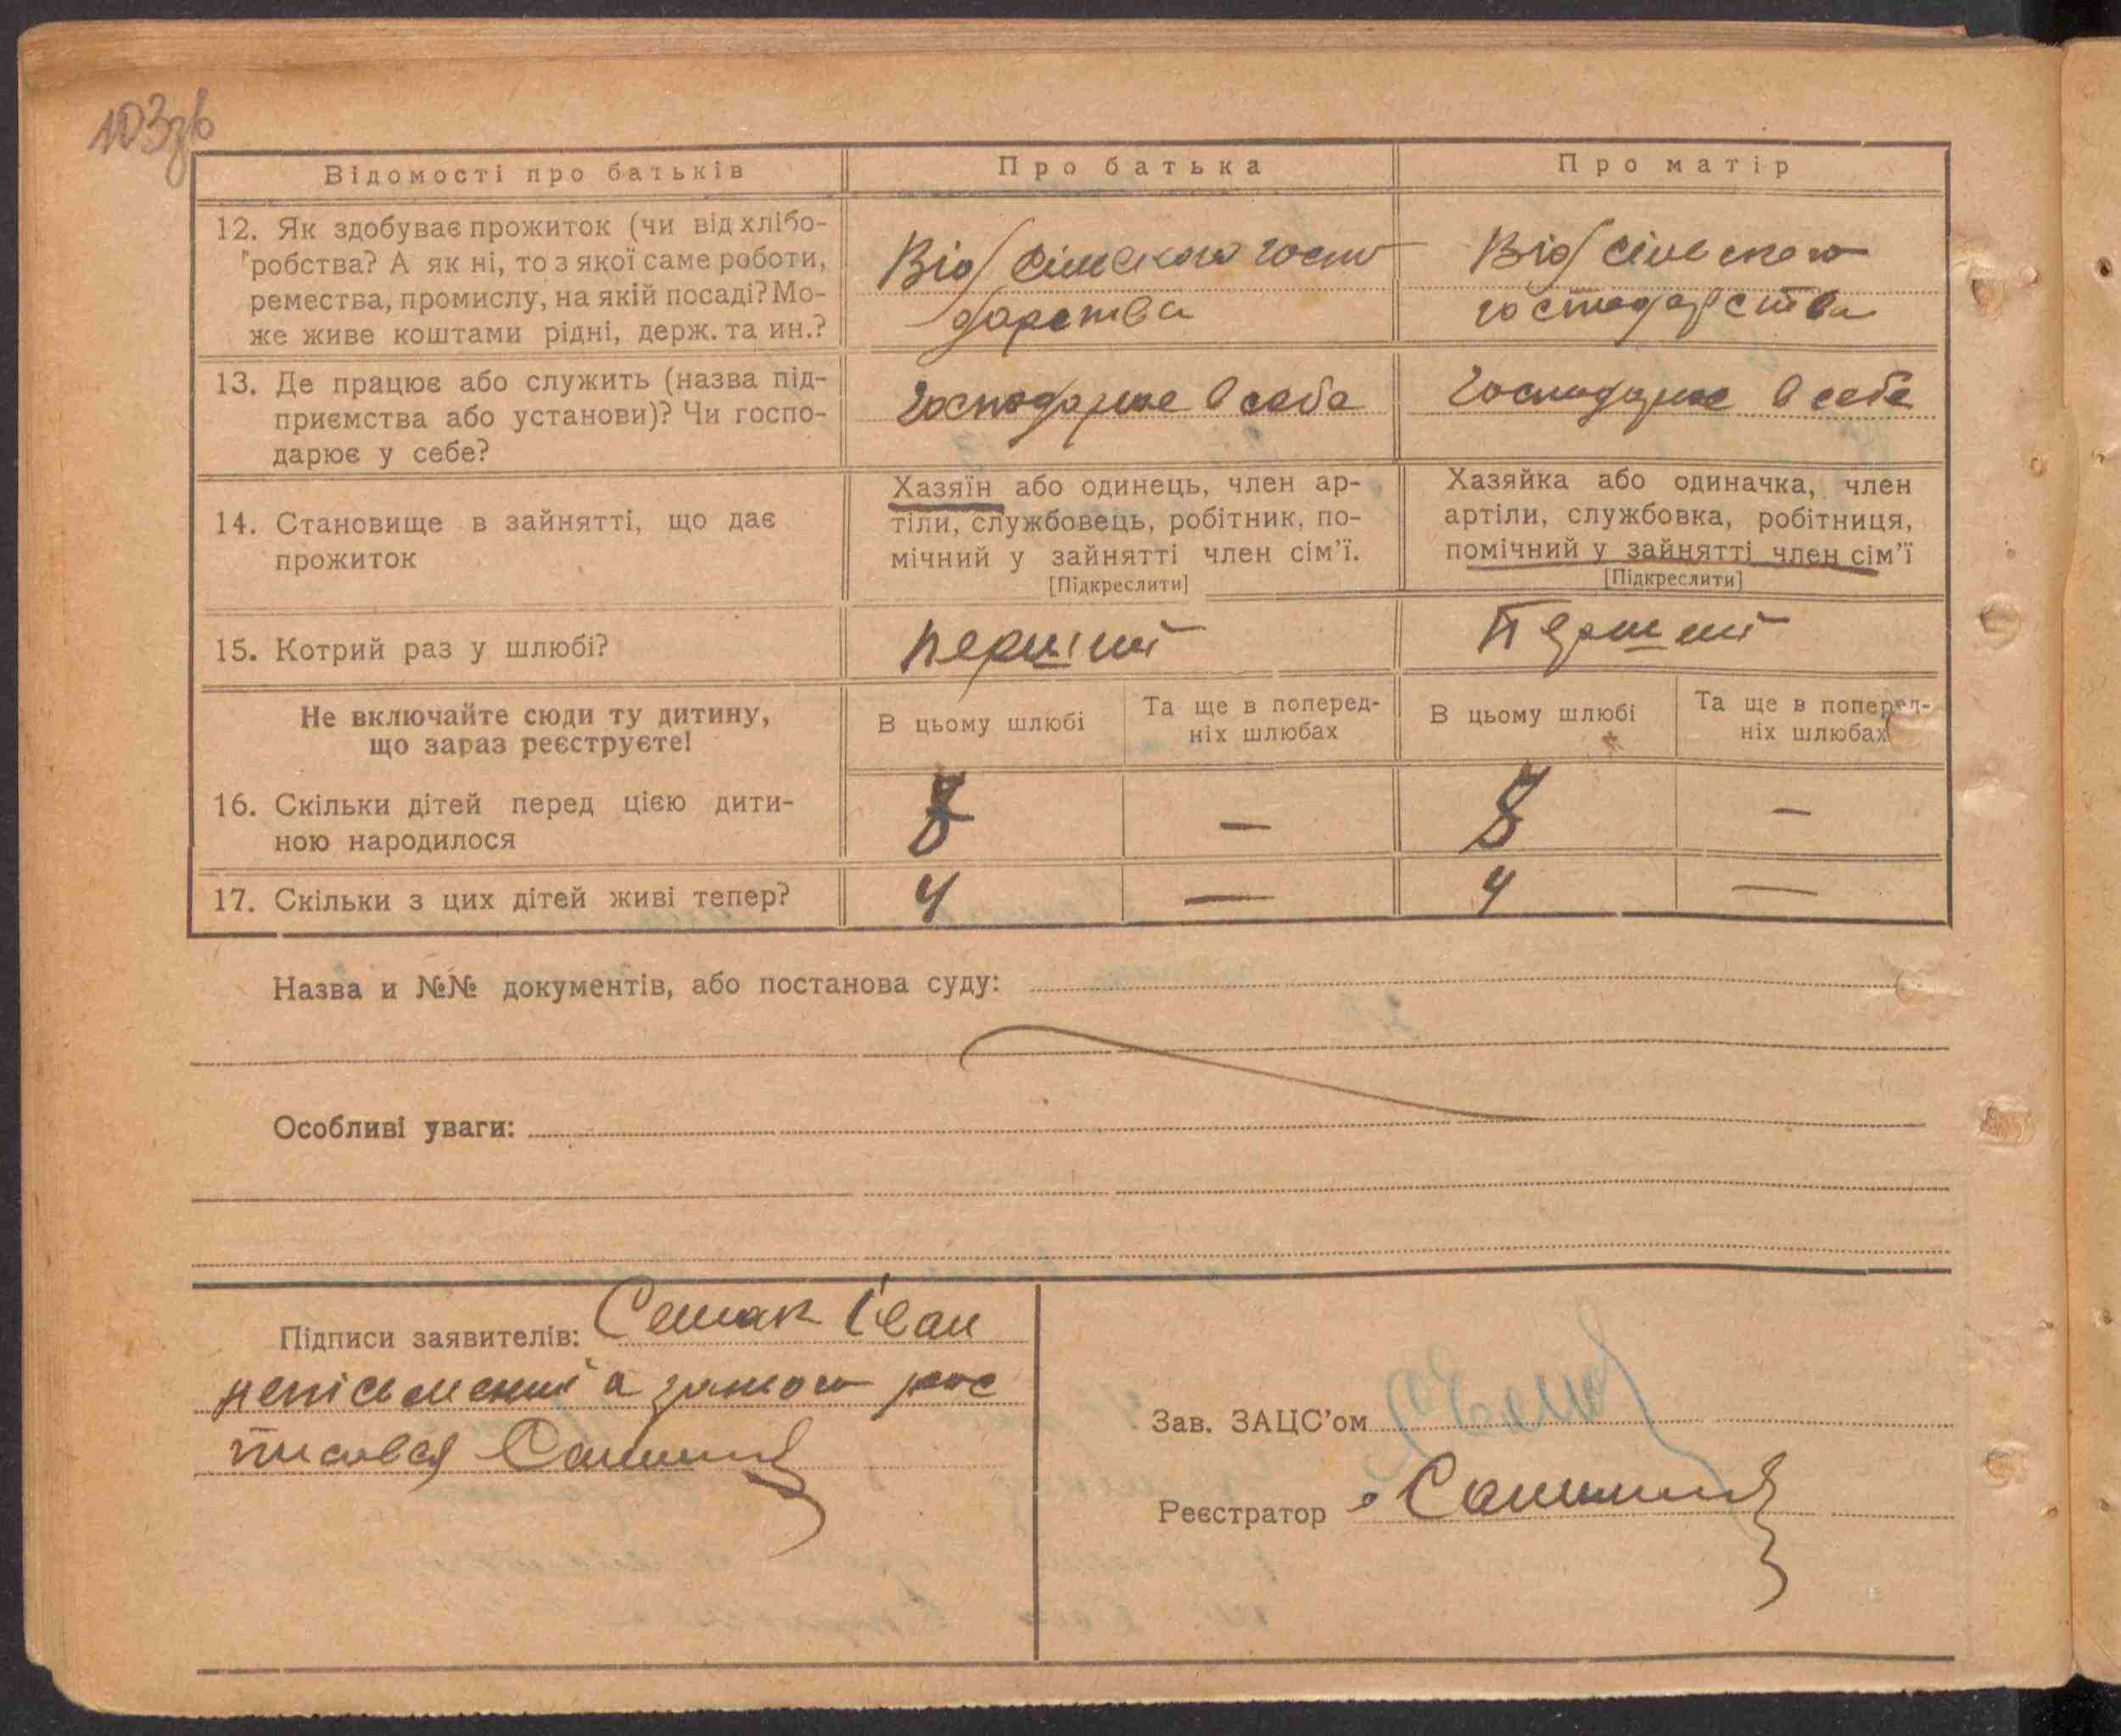 103зв
Відомості про батьків
Про батька
Про матір
12. Як здобуває прожиток (чи від хлібо-
робства? А як ні, то з якої саме роботи,
ремества, промислу, на якій посаді? Мо-
же живе коштами рідні, держ. та ин.?
Від сільского госпо
дарства
Від сільского
господарства
13. Де працює або служить (назва під-
приємства або установи)? Чи госпо-
дарює у себе?
Господарює в себе
Господарює в себе
14. Становище в зайнятті, що дає
прожиток
Хазяїн або одинець, член ар-
тіли, службовець, робітник, по-
мічний у зайнятті член сім’ї.
[Підкреслити]
Хазяйка або одиначка, член
артіли, службовка, робітниця,
помічний у зайнятті член сім’ї
[Підкреслити]
15. Котрий раз у шлюбі?
перший
перший
Не включайте сюди ту дитину,
що зараз реєструєте!
В цьому шлюбі
Та ще в поперед-
ніх шлюбах
В цьому шлюбі
Та ще в поперед-
ніх шлюбах
16. Скільки дітей перед цією дити-
ною народилося
8 — 8 —
17. Скільки з цих дітей живі тепер?
4 — 4 —
Назва и №№ документів, або постанова суду:
Особливі уваги:
Підписи заявителів: Семак Іван
непісьменний а за нього рос
писався
Зав. ЗАЦС’ом
Реєстратор